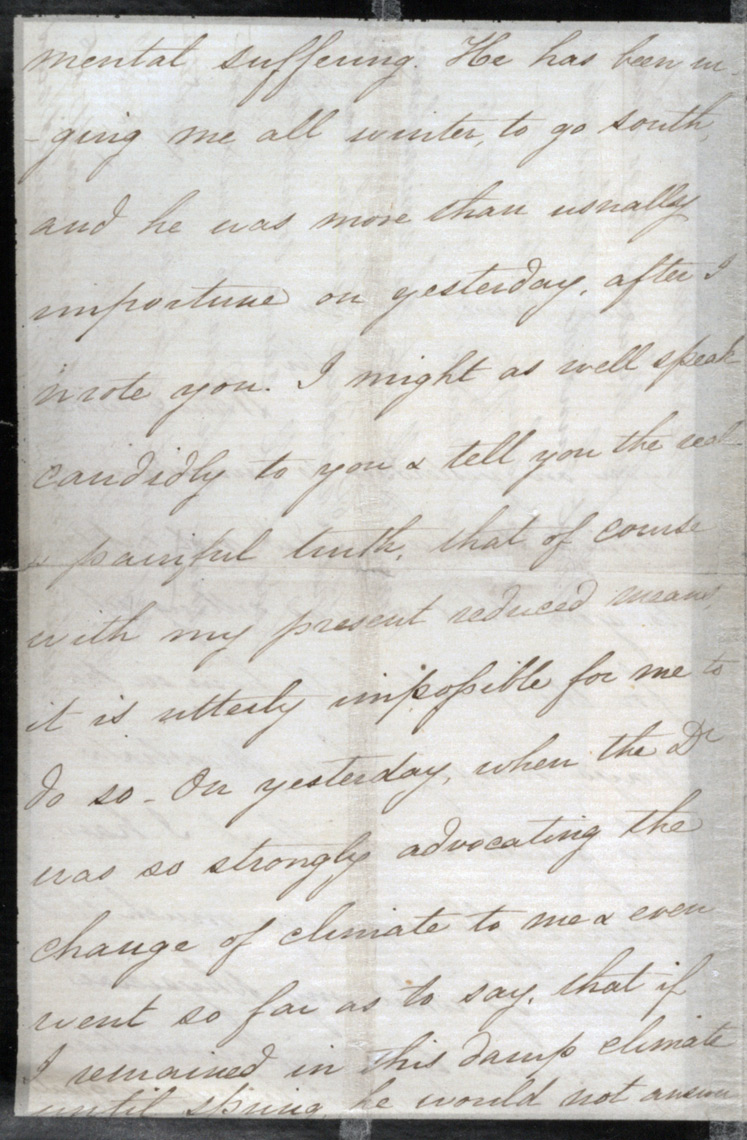 mental suffering. He has been ur-
-ging me all winter, to go south,
and he was more than usually
importune on yesterday, after I
wrote you. I might as well speak
candidly to you & tell you the real
& painful truth, that of course
with my present reduced means,
it is utterly impossible for me to
do so - On yesterday, when the Dr
was so strongly advocating the
change of climate to me & even
went so far as to say, that if
I remained in this damp climate
until spring, he would not answer